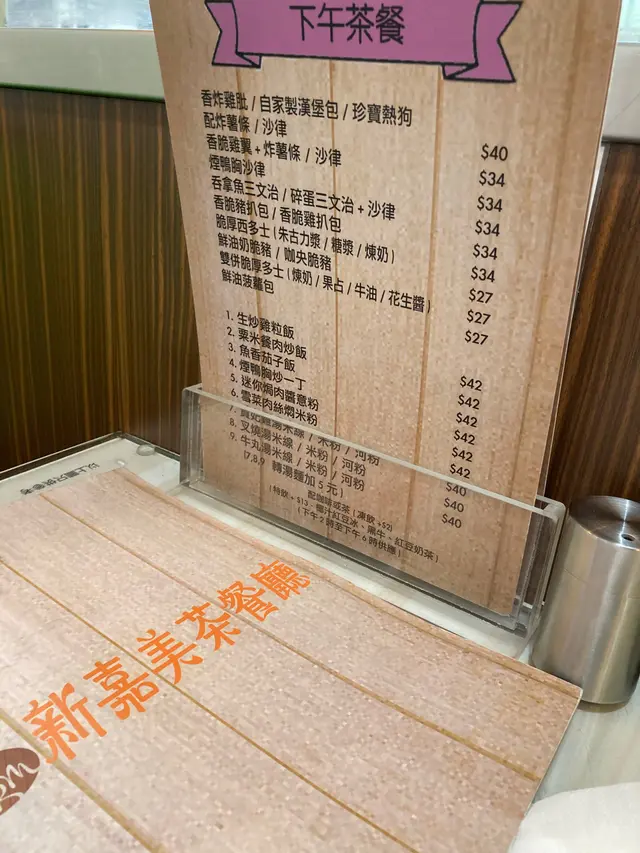 下午茶餐
香炸雞肶 / 自家製漢堡包 / 珍寶熱狗
配炸薯條 / 沙律 $40
香脆雞翼 + 炸薯條 / 沙律 $34
煙鴨胸沙律 $34
吞拿魚三文治 / 碎蛋三文治 + 沙律 $34
香脆豬扒包 / 香脆雞扒包 $34
脆厚西多士 ( 朱古力漿 / 糖漿 / 煉奶 ) $34
鮮油奶脆豬 / 咖央脆豬 $27
雙併脆厚多士 ( 煉奶 / 果占 / 牛油 / 花生醬 ) $27
鮮油菠蘿包 $27
1. 生炒雞粒飯 $42
2. 粟米餐肉炒飯 $42
3. 魚香茄子飯 $42
4. 煙鴨胸炒一丁 $42
5. 迷你焗肉醬意粉 $42
6. 雪菜肉絲燜米粉 $42
7. 貴妃雞湯米線 / 米粉 / 河粉 $40
8. 叉燒湯米線 / 米粉 / 河粉 $40
9. 牛丸湯米線 / 米粉 / 河粉 $40
(7,8,9 轉湯麵加 5 元 )
配咖啡或茶 ( 凍飲 +$2)
( 特飲 + $13 - 椰汁紅豆冰、黑牛、紅豆奶茶 )
( 下午 2 時至下午 6 時供應 )
以上圖只供參考
新嘉美茶餐廳